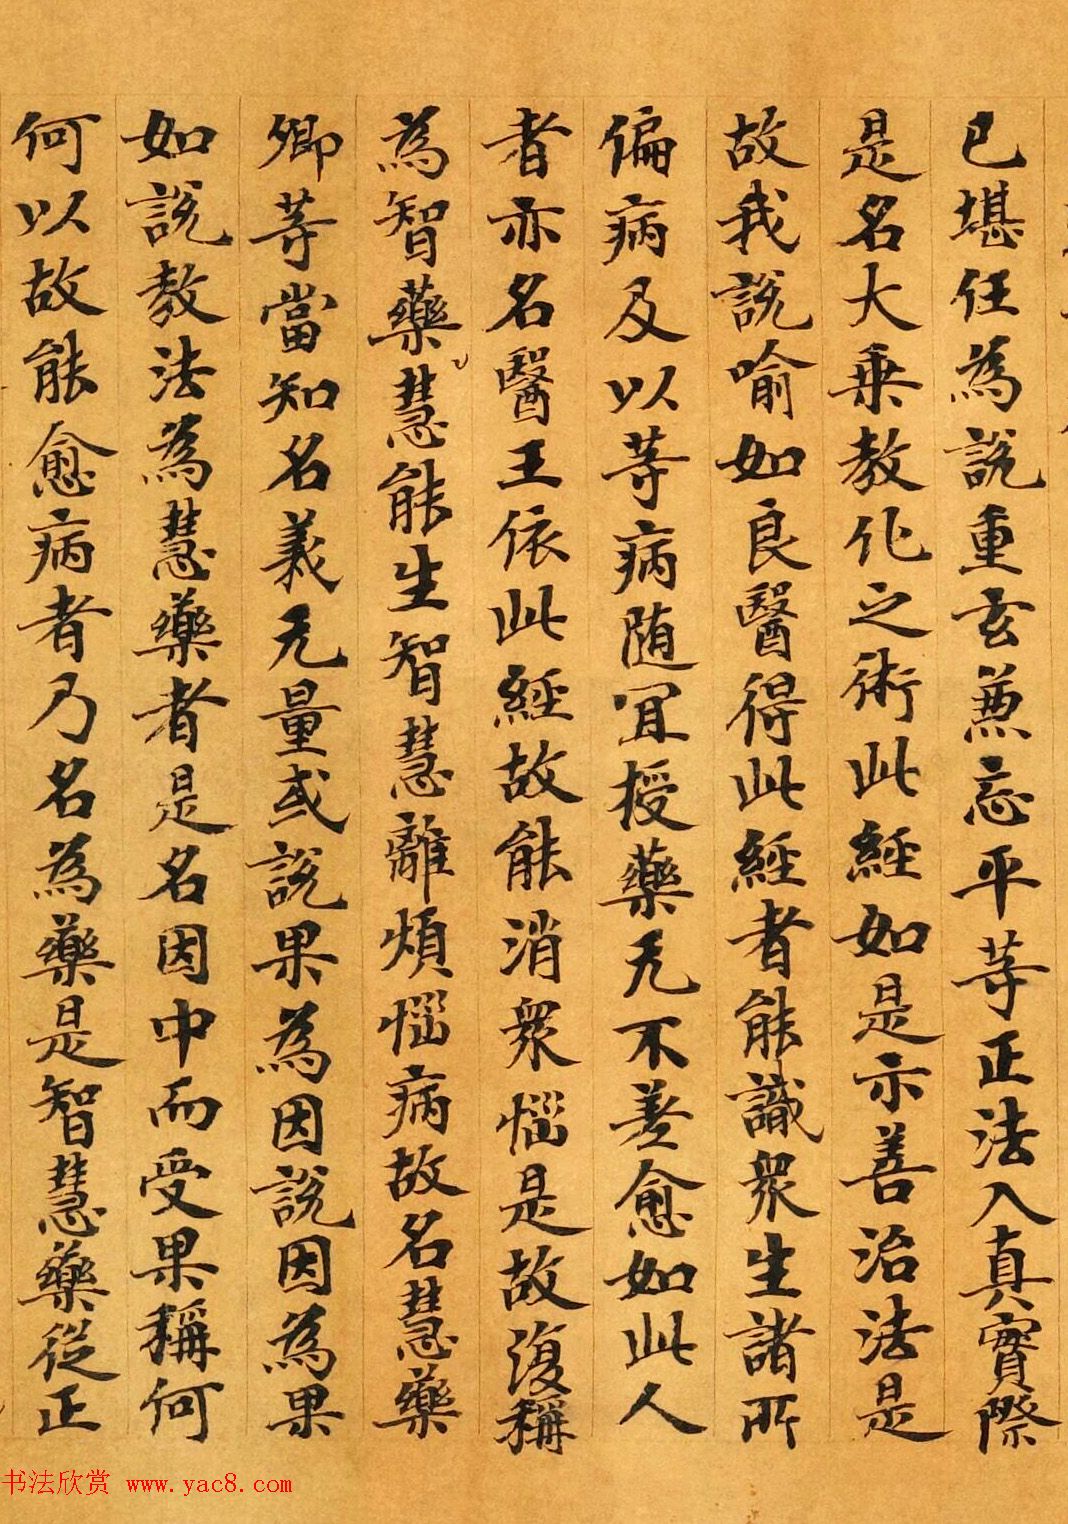 已堪任為說重玄兼忘平等正法入真實際
是名大乗教化之術此經如是亦善治法是
故我說喻如良醫得此經者能識衆生諸所
偏病及以等病随宜授藥无不差愈如此人
者亦名醫王依此經故能消衆惱是故復稱
為智藥慧能生智慧離煩惱病故名慧藥
卿等當知名義无量或說果為因說因為果
如說教法為慧藥者是名因中而受果稱何
何以故能愈病者乃名為藥是智慧藥從正
书法欣赏 www.yac8.com